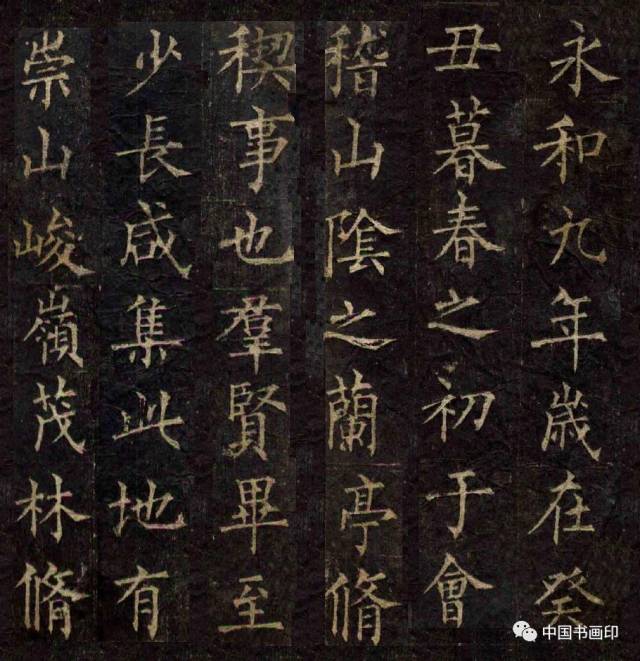 永和九年歲在癸
丑暮春之初于會
稽山陰之蘭亭脩
稧事也羣賢畢至
少長咸集此地有
崇山峻嶺茂林脩
中国书画印